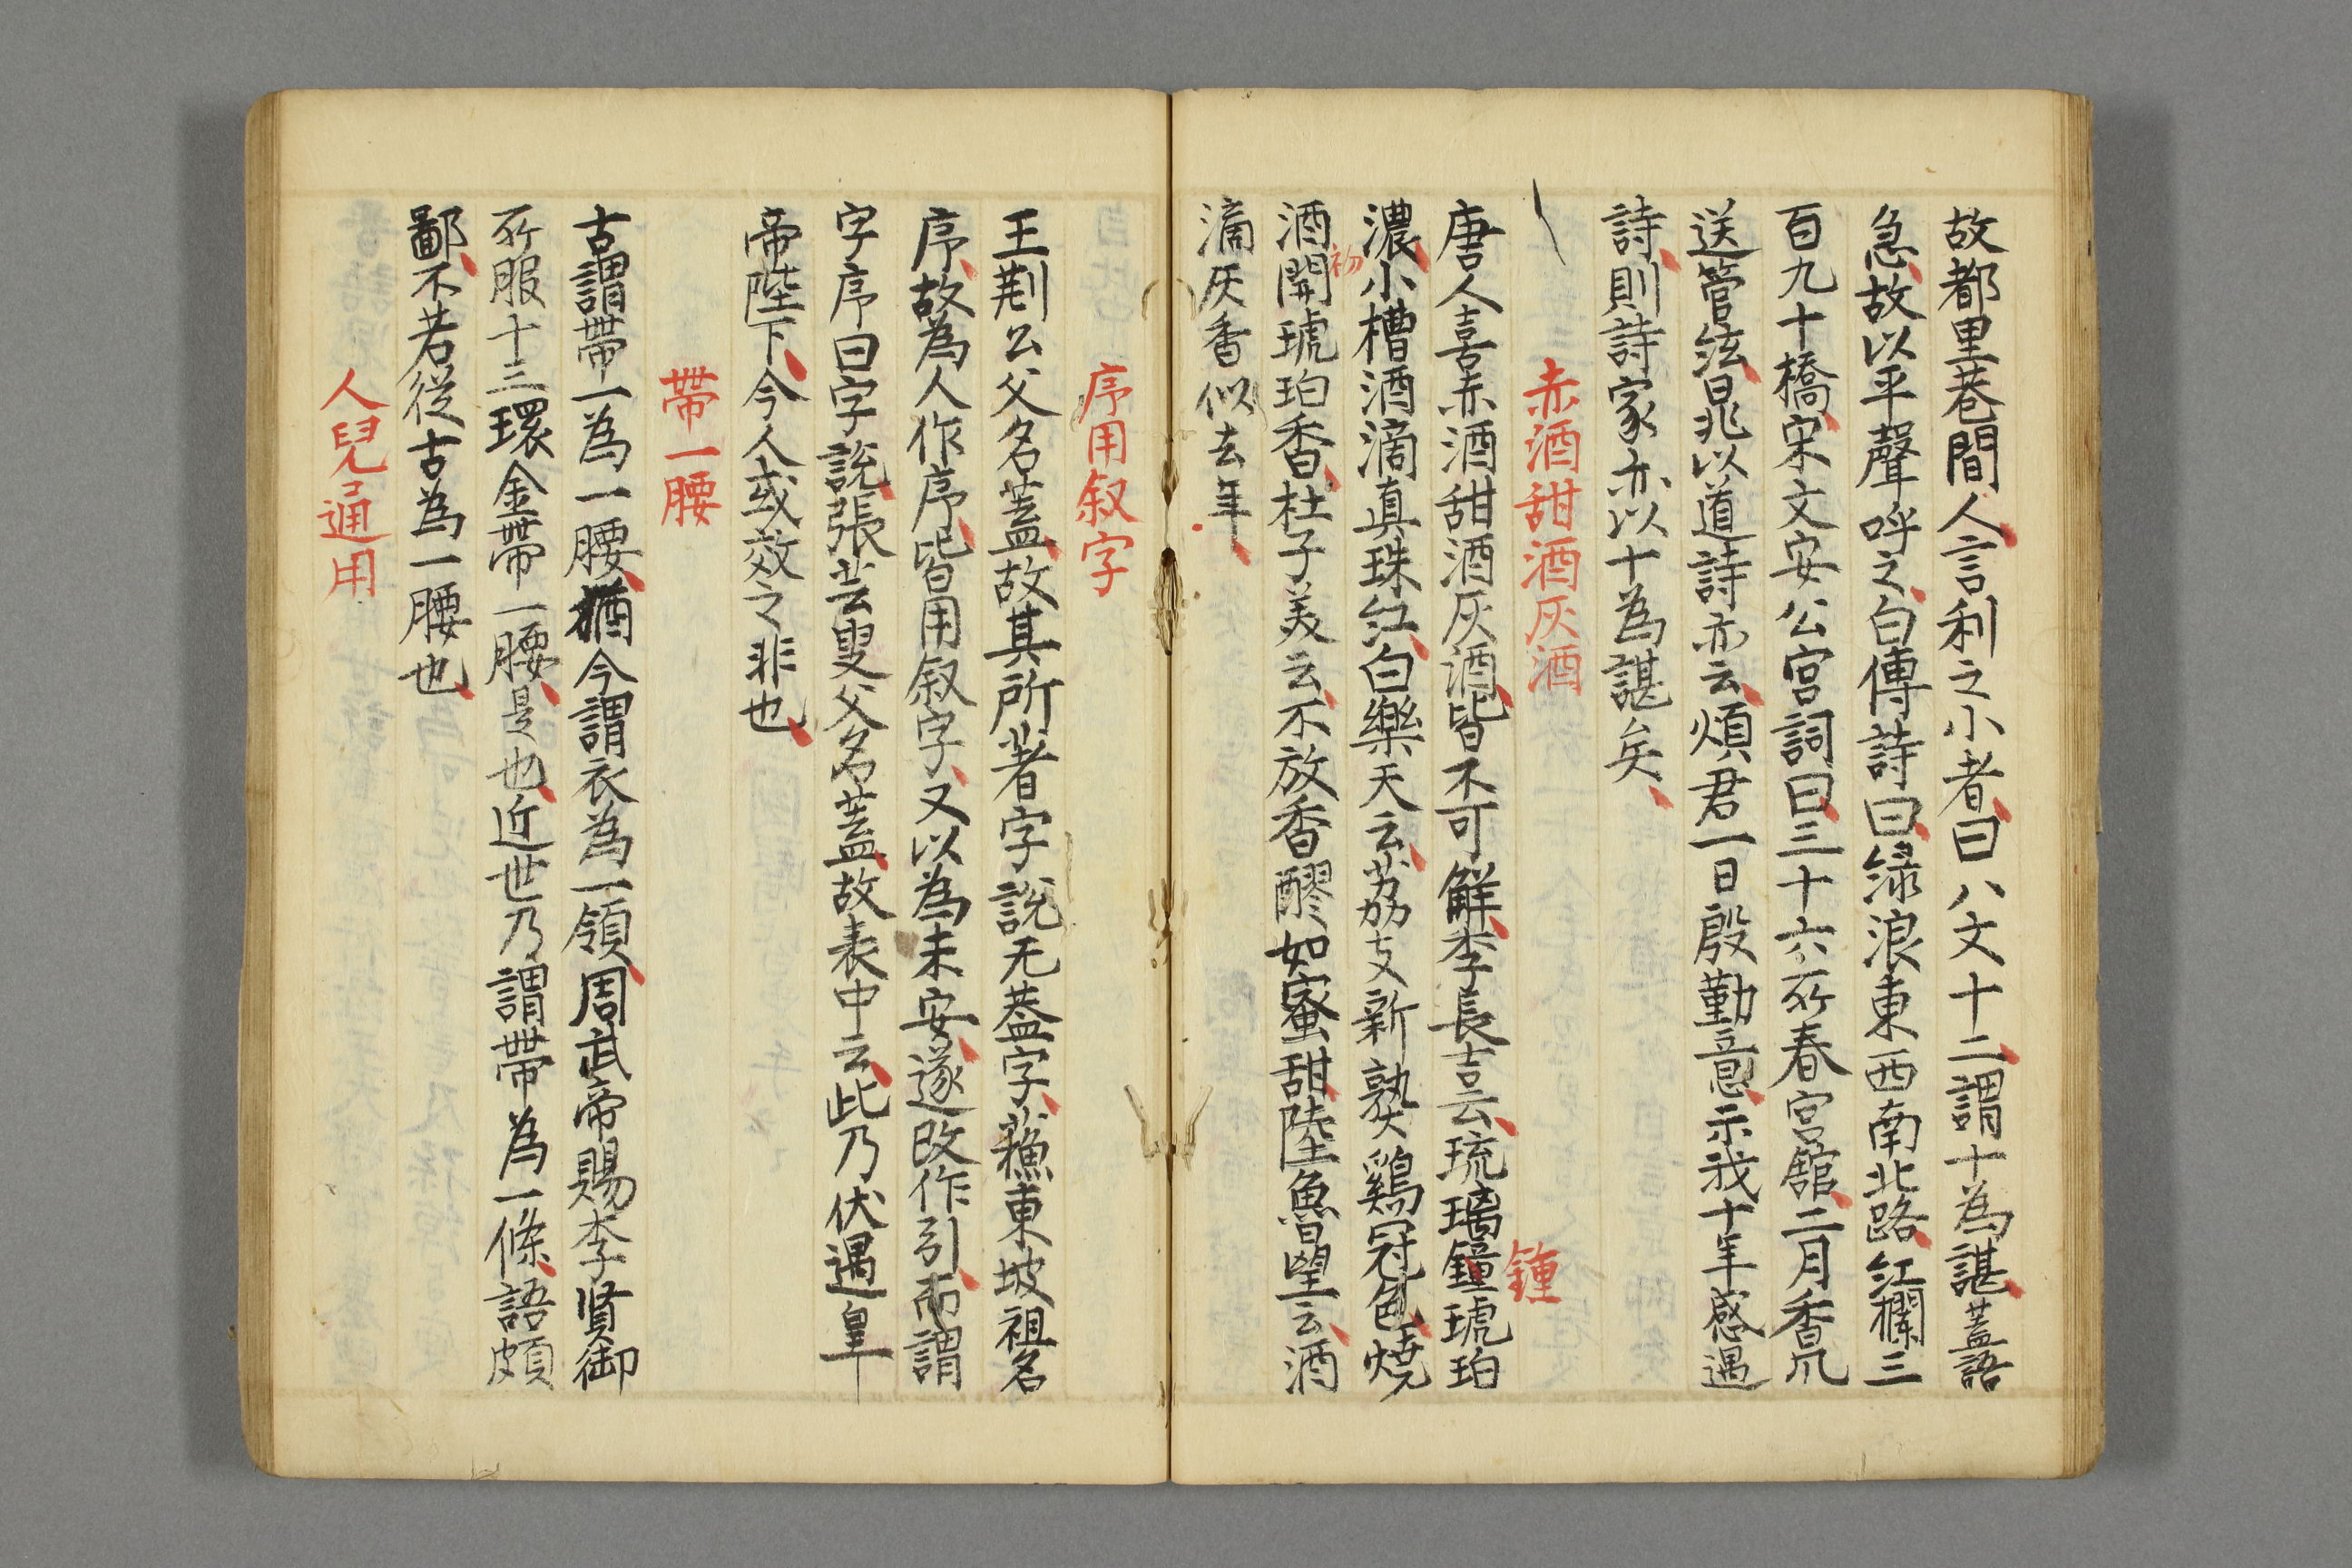 故都里巷間人言利之小者曰八文十二謂十為諶蓋語
急故以平聲呼之白傳詩曰緑浪東西南北路紅欄三
百九十橋宋文安公宮詞曰三十六所春宮舘二月香風
送管絃晁以道詩亦云煩君一日殷勤意示我十年感遇
詩則詩家亦以十為諶矣
赤酒甜酒灰酒
唐人喜赤酒甜酒灰酒皆不可觧李長吉云琉璃鐘琥珀
鍾
濃小槽酒滴真珠紅白樂天云茘支新熟鷄冠色燒
酒開琥珀香杜子美云不放香醪如蜜甜陸魯望云酒
初
滴灰香似去年
序用叙字
王荆公父名蓋故其所著字說无葢字蘓東坡祖名
序故為人作序皆用叙字又以為未安遂改作引而謂
字序曰字說張芸叟父名蓋故表中云此乃伏遇皇
帝陛下今人或效之非也
帶一腰
古謂帶一為一腰猶今謂衣為一領周武帝賜李賢御
所服十三環金帶一腰是也近世乃謂帶為一條語頗
鄙不若從古為一腰也
人兒通用